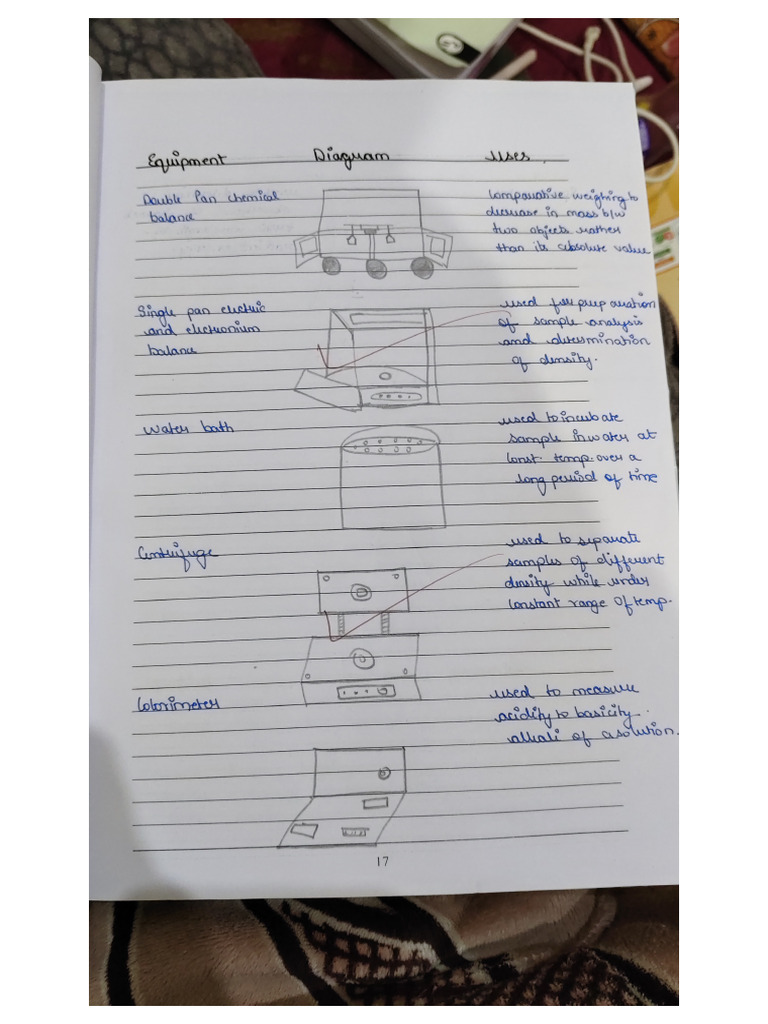 Equipment Diagram Uses.
Double Pan chemical balance
Comparative weighing to
decrease in mass b/w
two objects rather
than its absolute value
Single pan electric
and electronium
balance
used for preparation
of sample analysis
and determination
of density.
Water bath
used to incubate
sample in water at
const. temp. over a
long period of time
Centrifuge
used to separate
samples of different
density while under
constant range of temp.
Colorimeter
used to measure
acidity to basicity.
alkali of a solution.
17